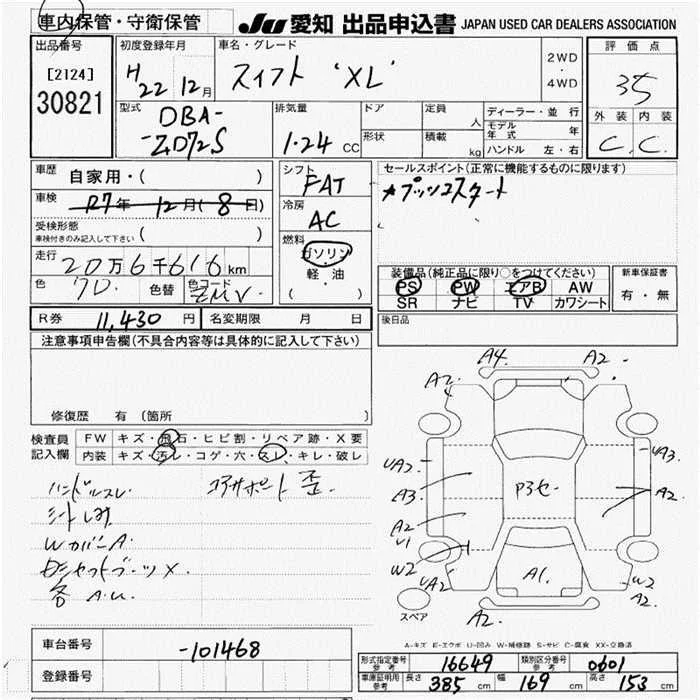 車内保管・守衛保管
JU 愛知 出品申込書 JAPAN USED CAR DEALERS ASSOCIATION
出品番号
[2124]
30821
初度登録年月
H22 12月
車名・グレード
スイフト 'XL'
2WD
・
4WD
評価点
35
外装 内装
C. C.
型式
DBA-
ZD72S
排気量
1.24 CC
ドア
形状
定員 人
積載 kg
ディーラー・並行
モデル年式 年
ハンドル 左・右
車歴
自家用・( )
車検
R7年 12月(8日)
受検形態
車検付きのみ記入して下さい ( )
走行
20万6千616km
色
7D.
色替
色コード
ZMV.
シフト
FAT
冷房
AC
燃料
ガソリン
・
軽・油
( )
セールスポイント(正常に機能するものに限ります)
★プッシュスタート
装備品(純正品に限り○をつけてください)
PS PW エアB AW
SR ナビ TV カワシート
新車保証書
有・無
R券 11,430 円
名変期限 月 日
後日品
注意事項申告欄(不具合内容等は具体的に記入して下さい)
修復歴 有 (箇所 )
検査員
記入欄
FW キズ・飛石・ヒビ割・リペア跡・X要
内装 キズ・汚レ・コゲ・穴・スレ・キレ・破レ
ハンドルスレ
シートしみ
Wカバー A
シャフトブーツ X.
各 A.U.
コアサポート 歪.
A4. A2
A2.
A2.
UA2
UA3.
A3
P3セ
A2
A2
U1
W2
UA2
A1.
W2
A2.
A2.
スペア
A-キズ E-エクボ U-凹み W-補修跡 S-サビ C-腐食 XX-交換済
車台番号 -101468
登録番号
型式指定番号 参考 16649
類別区分番号 参考 0601
車庫証明用 参考 長さ 385 cm 幅 169 cm 高さ 153 cm